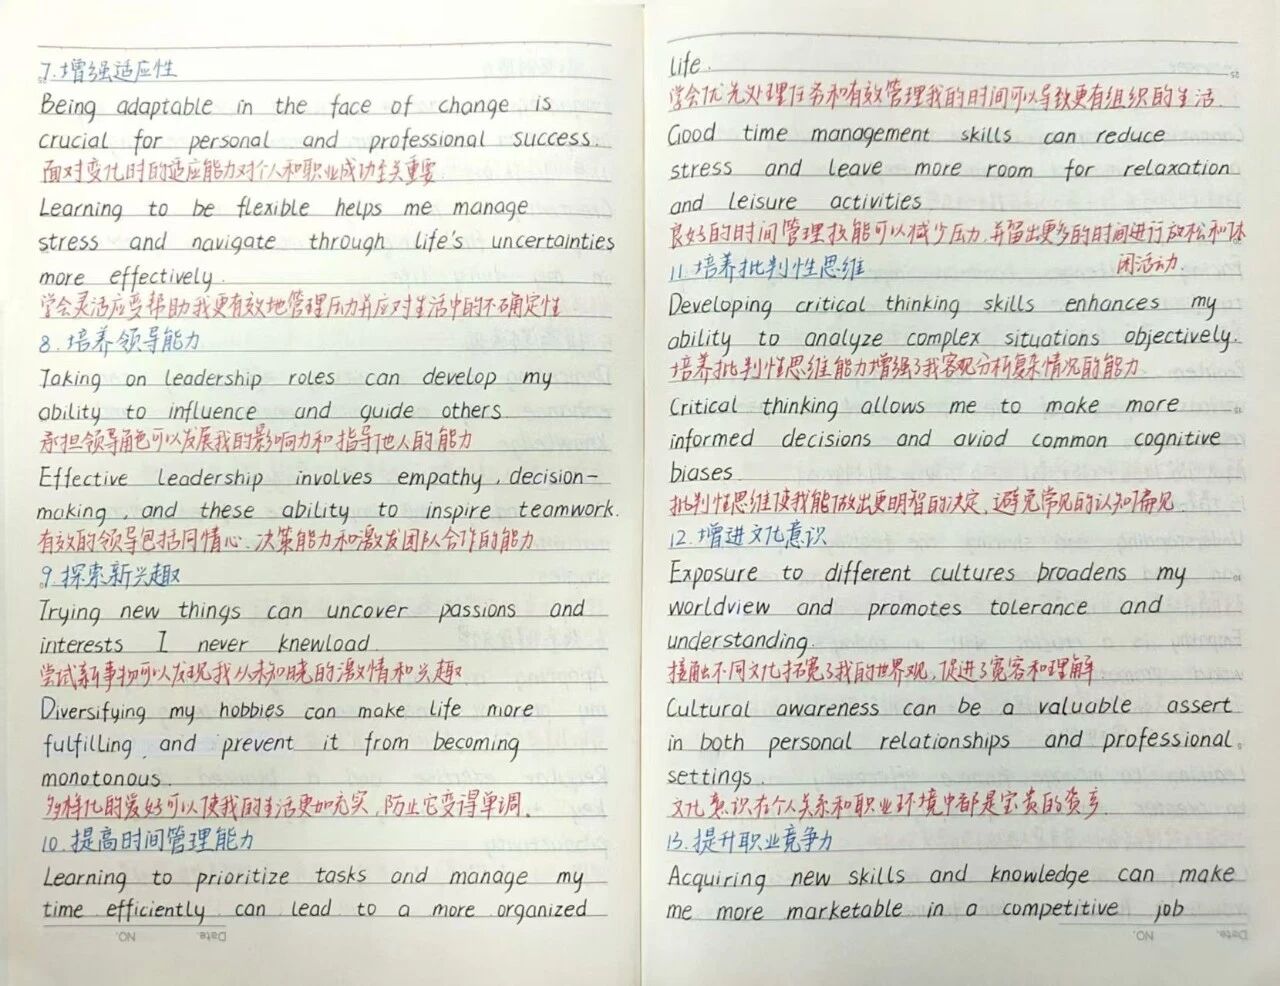 7.增强适应性
Being adaptable in the face of change is
crucial for personal and professional success.
面对变化时的适应能力对个人和职业成功至关重要
Learning to be flexible helps me manage
stress and navigate through life's uncertainties
more effectively.
学会灵活应变帮助我更有效地管理压力并应对生活中的不确定性
8.培养领导能力
Taking on leadership roles can develop my
ability to influence and guide others.
承担领导角色可以发展我的影响力和指导他人的能力
Effective leadership involves empathy, decision-
making, and these ability to inspire teamwork.
有效的领导包括同情心、决策能力和激发团队合作的能力
9.探索新兴趣
Trying new things can uncover passions and
interests I never knewload.
尝试新事物可以发现我从未知晓的激情和兴趣.
Diversifying my hobbies can make life more
fulfilling and prevent it from becoming
monotonous.
多样化的爱好可以使我的生活更加充实,防止它变得单调.
10.提高时间管理能力
Learning to prioritize tasks and manage my
time efficiently can lead to a more organized
Date. NO.
life.
学会优先处理任务和有效管理我的时间可以导致更有组织的生活.
Good time management skills can reduce
stress and leave more room for relaxation
and leisure activities
良好的时间管理技能可以减少压力,并留出更多的时间进行放松和休
闲活动.
11.培养批判性思维
Developing critical thinking skills enhances my
ability to analyze complex situations objectively.
培养批判性思维能力增强了我客观分析复杂情况的能力
Critical thinking allows me to make more
informed decisions and aviod common cognitive
biases.
批判性思维使我能做出更明智的决定,避免常见的认知偏见.
12.增进文化意识
Exposure to different cultures broadens my
worldview and promotes tolerance and
understanding.
接触不同文化拓宽了我的世界观,促进了宽容和理解
Cultural awareness can be a valuable assert
in both personal relationships and professional
settings.
文化意识在个人关系和职业环境中都是宝贵的资产.
13.提升职业竞争力
Acquiring new skills and knowledge can make
me more marketable in a competitive job
Date. NO.